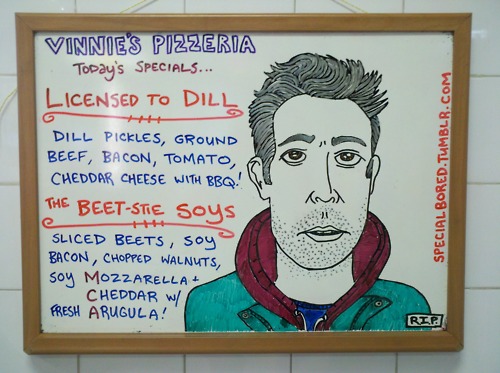 VINNIE'S PIZZERIA
TODAY'S SPECIALS...
LICENSED TO DILL
DILL PICKLES, GROUND
BEEF, BACON, TOMATO,
CHEDDAR CHEESE WITH BBQ!
THE BEET-STIE SOYS
SLICED BEETS, SOY
BACON, CHOPPED WALNUTS,
SOY MOZZARELLA +
CHEDDAR W/
FRESH ARUGULA!
SPECIALBORED.TUMBLR.COM
R.I.P.